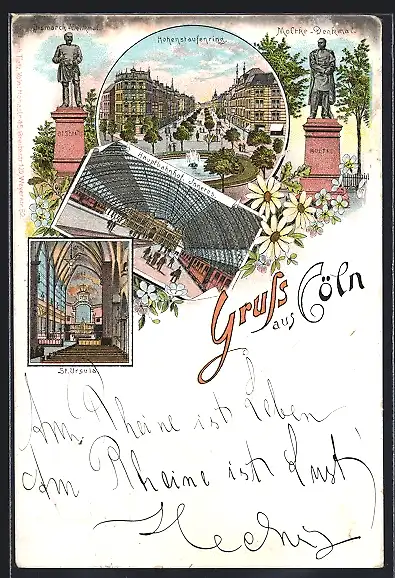 Bismarck-Denkmal
Hohenstaufenring
Moltke-Denkmal
BISMARCK
MOLTKE
Hauptbahnhof Inneres
St. Ursula
Gruß aus Cöln
Am Rheine ist Leben
Am Rheine ist Lust
Hedwig